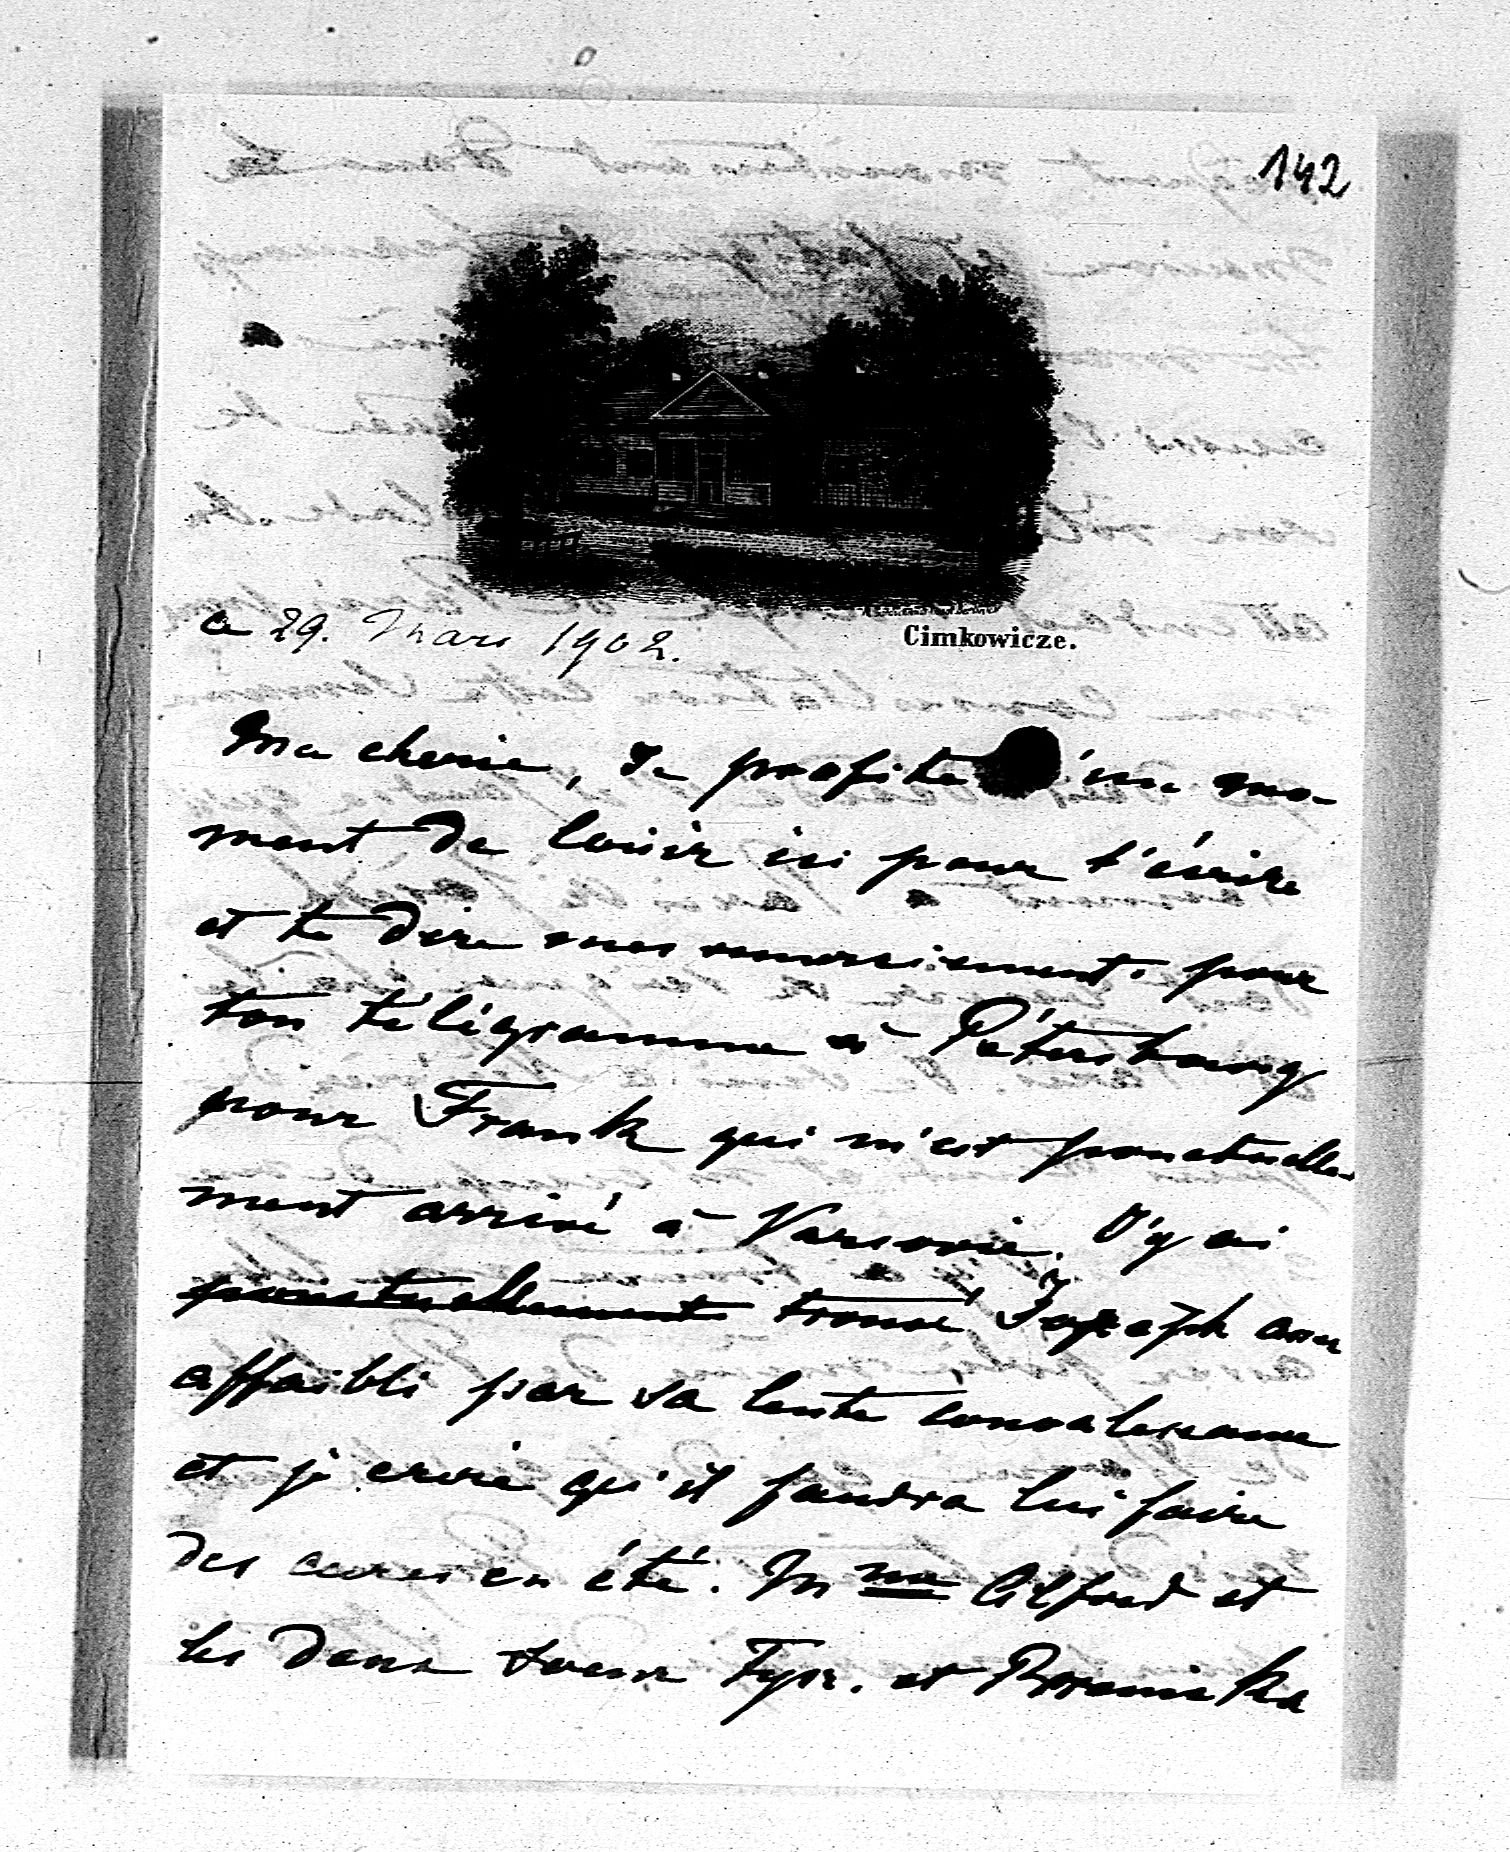 142
Cimkowicze.
a 29. Mars 1902.
Ma cherie, Je profite d'un mo-
ment de loisir ici pour t'écrire
et te dire mes remerciements pour
ton télégramme à Pétersbourg
pour Frank qui m'est ponctuelle-
ment arrivé à Varsovie. J'y ai
ponctuellement trouvé Joseph assez
affaibli par sa lente convalescence
et je crois qu'il faudra lui faire
des cures en été. Mme et
les deux soeurs et